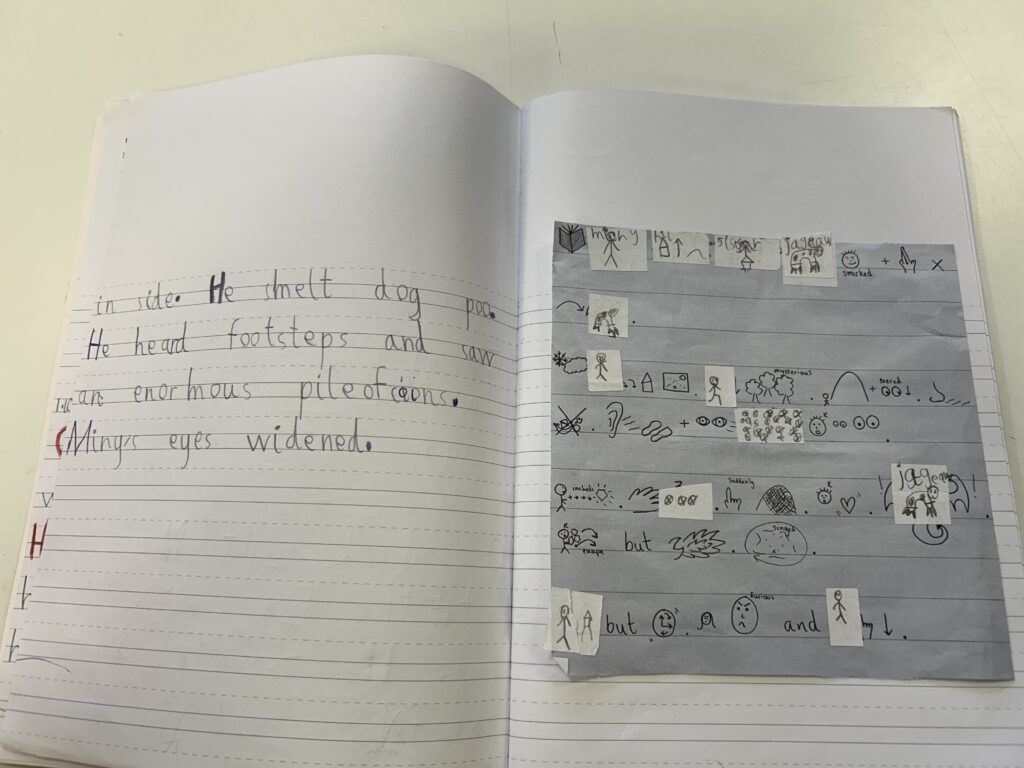 in side. He smelt dog poo.
He heard footsteps and saw
an enormous pile of coins.
Ming's eyes widened.
H
smirked
mysterious
peered
inched
suddenly
escape but singed
but furious and